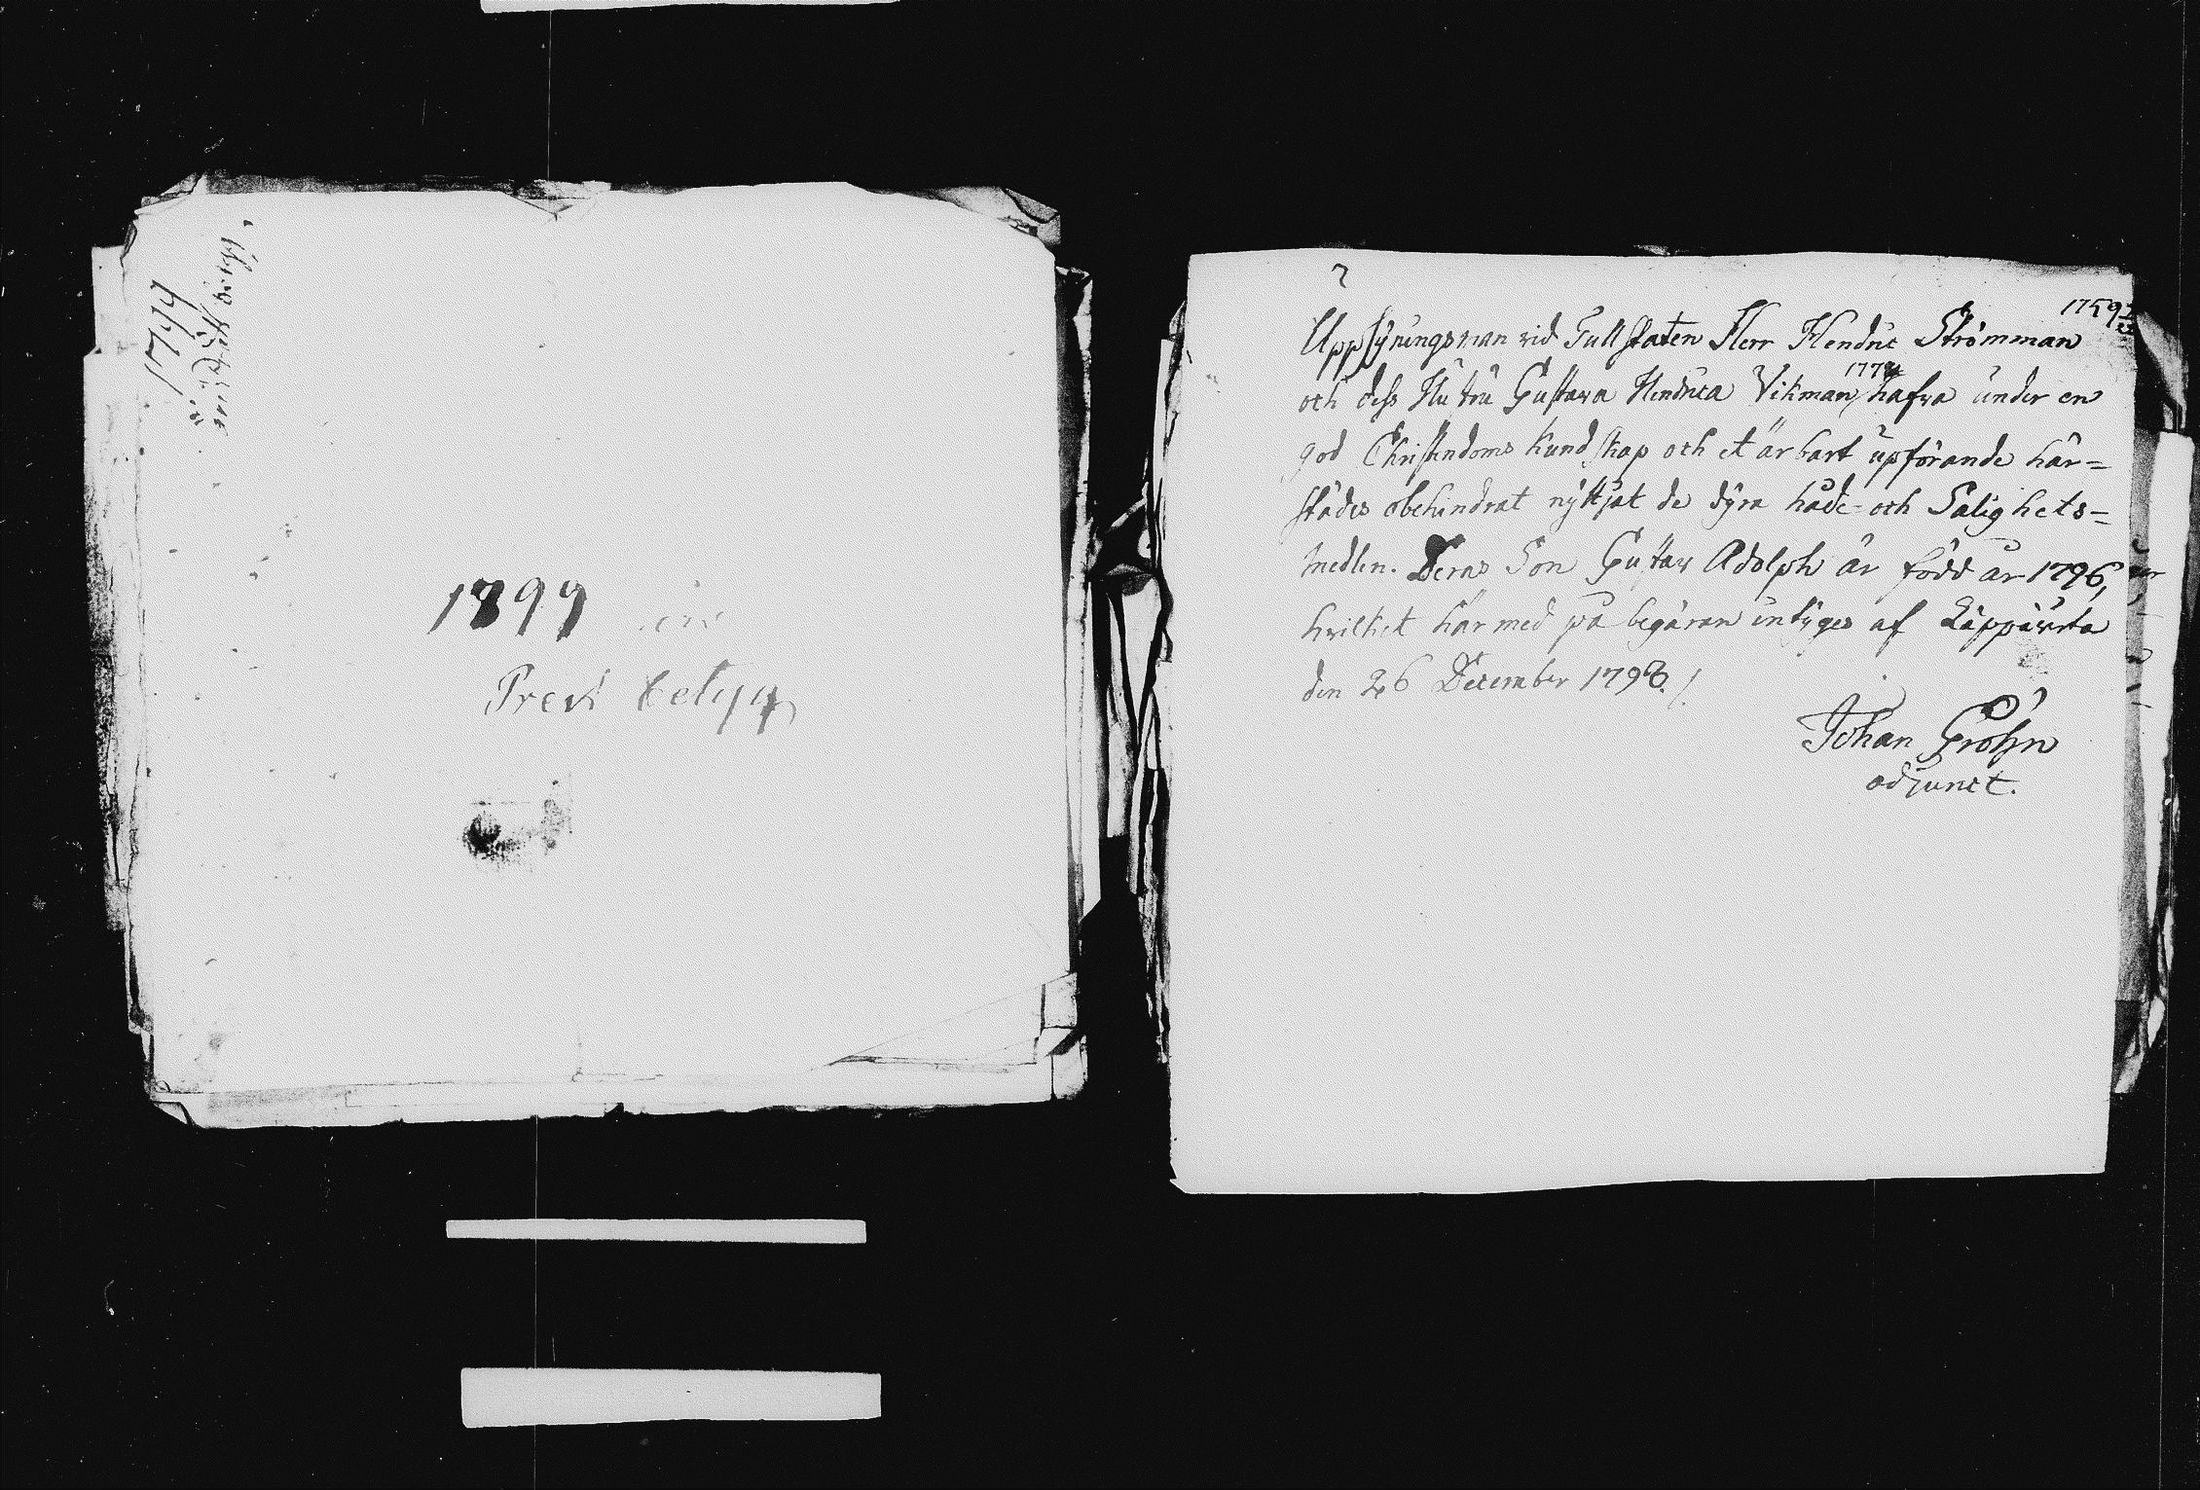 1799
Prest betyg
1759
Uppsyningsman vid Tullstaten Herr Hendric Strömman
1772
och dess Hustru Gustava Hendrica Vikman, hafva under en
god Christendoms kundskap och et ärbart upförande här=
städes obehindrat nyttjat de dyra nåde- och Salighets=
medlen. Deras Son Gustav Adolph är född år 1796,
hvilket här med på begäran intyges af Käppäärlä
den 26 December 1798./.
Johan Grohn
adjunct.